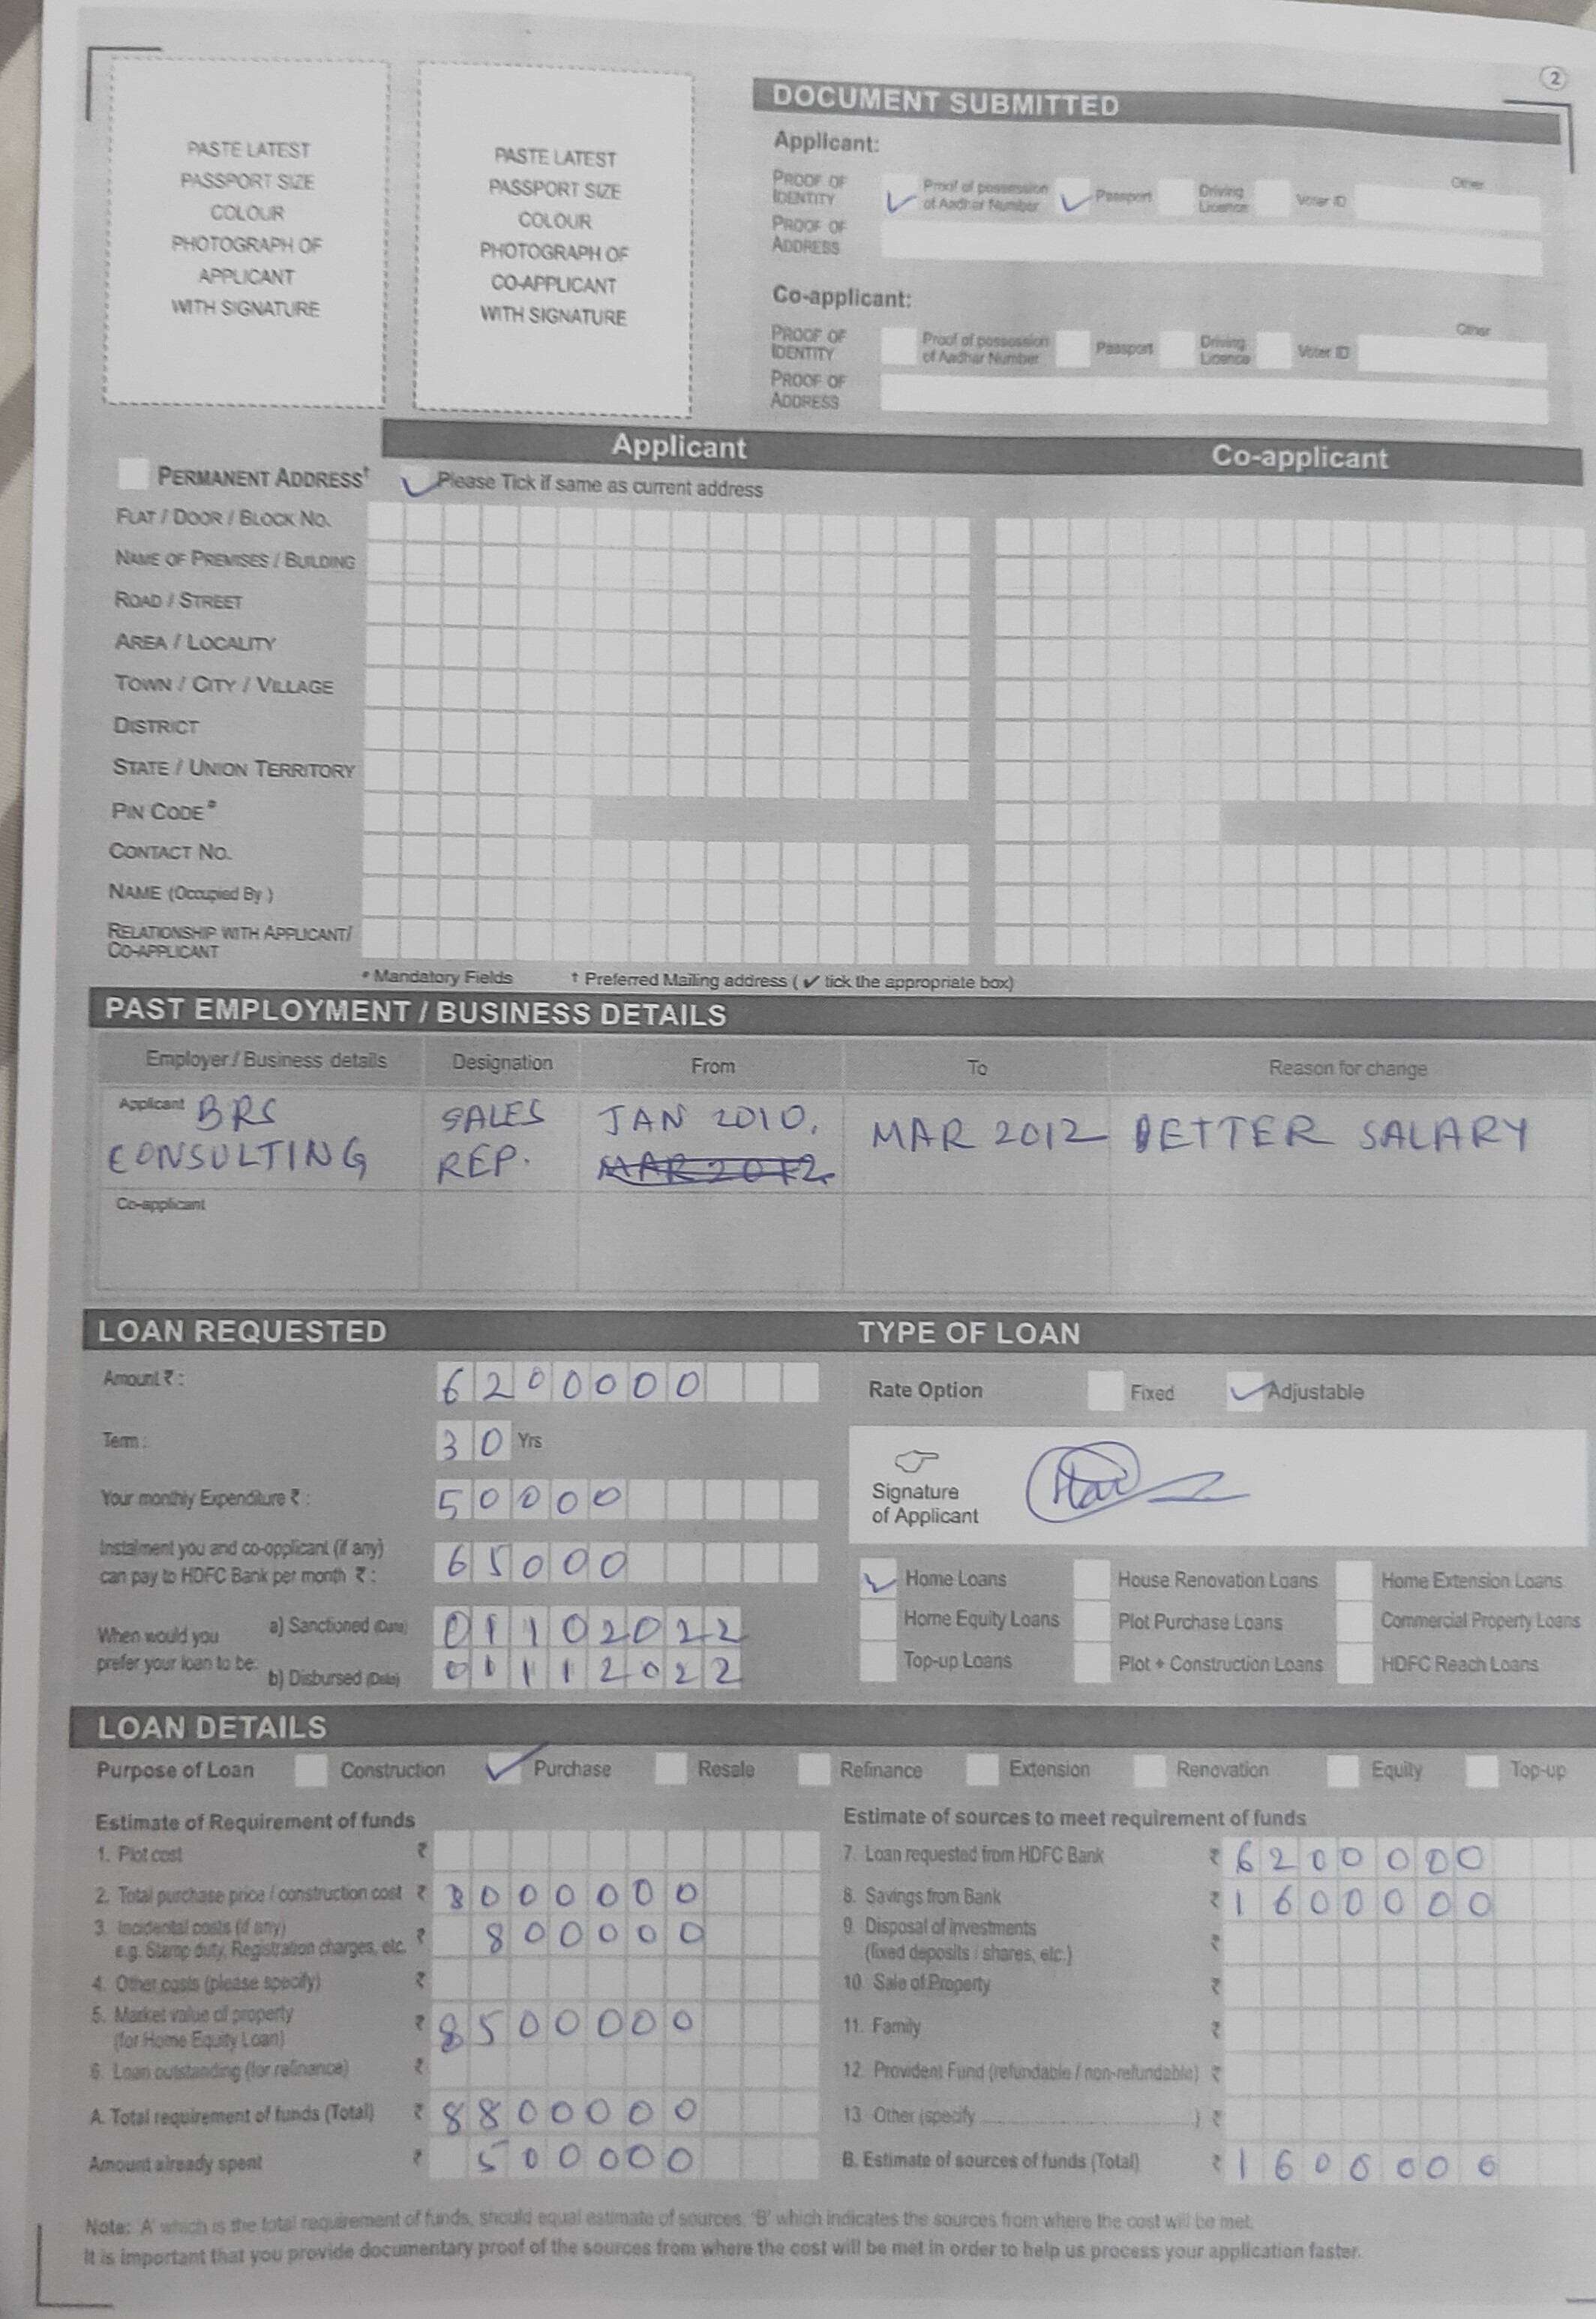 2
PASTE LATEST
PASSPORT SIZE
COLOUR
PHOTOGRAPH OF
APPLICANT
WITH SIGNATURE
PASTE LATEST
PASSPORT SIZE
COLOUR
PHOTOGRAPH OF
CO-APPLICANT
WITH SIGNATURE
DOCUMENT SUBMITTED
Applicant:
PROOF OF IDENTITY ✓ Proof of possession of Aadhar Number ✓ Passport Driving Licence Voter ID Other
PROOF OF ADDRESS
Co-applicant:
PROOF OF IDENTITY Proof of possession of Aadhar Number Passport Driving Licence Voter ID Other
PROOF OF ADDRESS
Applicant Co-applicant
PERMANENT ADDRESS† ✓ Please Tick if same as current address
FLAT / DOOR / BLOCK NO.
NAME OF PREMISES / BUILDING
ROAD / STREET
AREA / LOCALITY
TOWN / CITY / VILLAGE
DISTRICT
STATE / UNION TERRITORY
PIN CODE#
CONTACT NO.
NAME (Occupied By )
RELATIONSHIP WITH APPLICANT/
CO-APPLICANT
# Mandatory Fields † Preferred Mailing address ( ✓ tick the appropriate box)
PAST EMPLOYMENT / BUSINESS DETAILS
Employer / Business details Designation From To Reason for change
Applicant BRS SALES JAN 2010. MAR 2012 BETTER SALARY
CONSULTING REP. MAR 2012
Co-applicant
LOAN REQUESTED
Amount ₹ : 6200000
Term : 30 Yrs
Your monthly Expenditure ₹ : 50000
Instalment you and co-applicant (if any)
can pay to HDFC Bank per month ₹ : 65000
When would you prefer your loan to be:
a) Sanctioned (Date) 01102022
b) Disbursed (Date) 01112022
TYPE OF LOAN
Rate Option Fixed ✓ Adjustable
Signature
of Applicant
✓ Home Loans House Renovation Loans Home Extension Loans
Home Equity Loans Plot Purchase Loans Commercial Property Loans
Top-up Loans Plot + Construction Loans HDFC Reach Loans
LOAN DETAILS
Purpose of Loan Construction ✓ Purchase Resale Refinance Extension Renovation Equity Top-up
Estimate of Requirement of funds
1. Plot cost ₹
2. Total purchase price / construction cost ₹ 8000000
3. Incidental costs (if any)
e.g. Stamp duty, Registration charges, etc. ₹ 800000
4. Other costs (please specify) ₹
5. Market value of property
(for Home Equity Loan) ₹ 8500000
6. Loan outstanding (for refinance) ₹
A. Total requirement of funds (Total) ₹ 8800000
Amount already spent ₹ 500000
Estimate of sources to meet requirement of funds
7. Loan requested from HDFC Bank ₹ 6200000
8. Savings from Bank ₹ 1600000
9. Disposal of investments
(fixed deposits / shares, etc.) ₹
10. Sale of Property ₹
11. Family ₹
12. Provident Fund (refundable / non-refundable) ₹
13. Other (specify ........................................) ₹
B. Estimate of sources of funds (Total) ₹ 1600000
Note: 'A' which is the total requirement of funds, should equal estimate of sources, 'B' which indicates the sources from where the cost will be met.
It is important that you provide documentary proof of the sources from where the cost will be met in order to help us process your application faster.